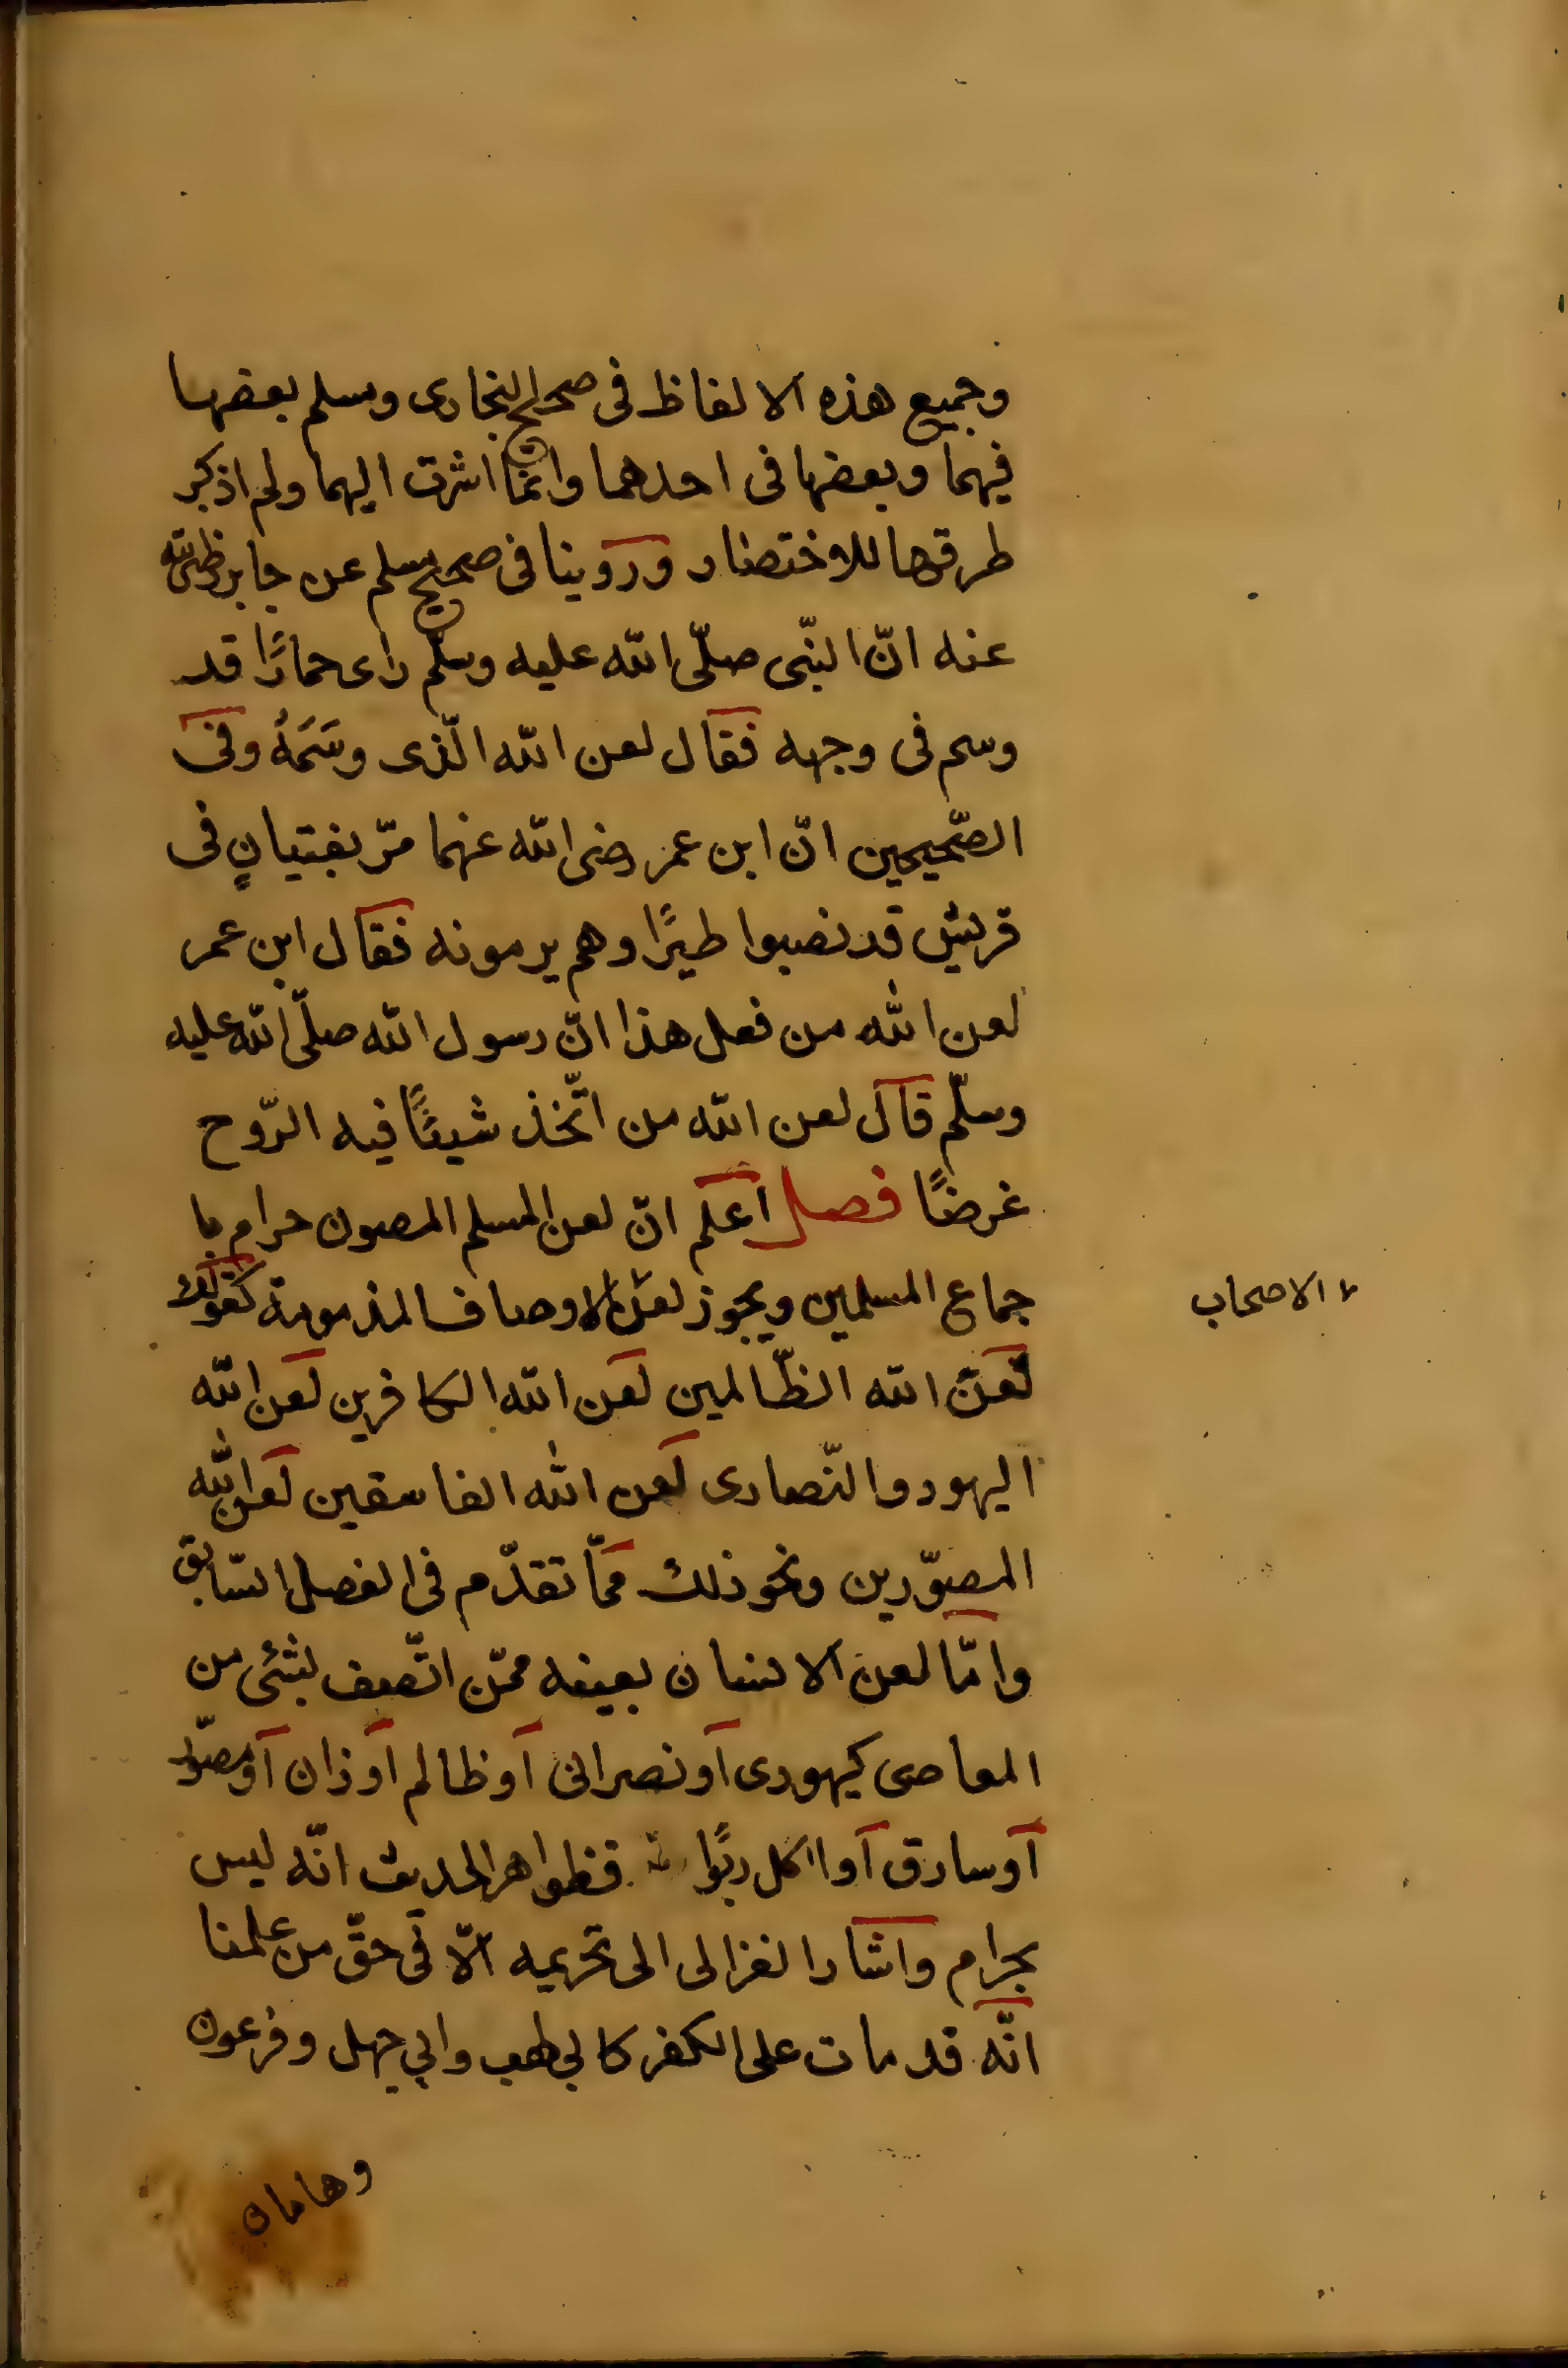 وجميع هذه الالفاظ فى صحيح البخارى ومسلم بعضها
فيهما وبعضها فى احدهما وانّما اشرت اليهما ولم اذكر
طرقها للاختصار وروينا فى صحيح مسلم عن جابر رضى الله
عنه انّ النّبى صلّى الله عليه وسلّم راى حمارًا قد
وسم فى وجهه فقال لعن الله الّذى وسَمَهُ وفى
الصّحيحين انّ ابن عمر رضى الله عنهما مرّ بفتيانٍ فى
قريش قد نصبوا طيرًا وهم يرمونه فقال ابن عمر
لعن الله من فعل هذا انّ رسول الله صلّى الله عليه
وسلّم قال لعن الله من اتّخذ شيئًا فيه الرّوح
غرضًا فصل اعلم انّ لعن المسلم المصون حرام با
جماع المسلمين ويجوز لعن الاوصاف المذمومة كقولك
لعن الله الظّالمين لعن الله الكافرين لعن الله
اليهود والنّصارى لعن الله الفاسقين لعن الله
المصوّرين ونحو ذلك ممّا تقدّم فى الفصل السّابق
وامّا لعن الانسان بعينه ممّن اتّصف بشئ من
المعاصى كيهودى او نصرانى او ظالم او زان او مصوّر
او سارق او اكل ربًوا فظواهر الحديث انّه ليس
بحرام واشار الغزالى الى تحريمه الّا فى حقّ من علمنا
انّه قد مات على الكفر كابى لهب وابى جهل وفرعون
وهامان
الاصحاب